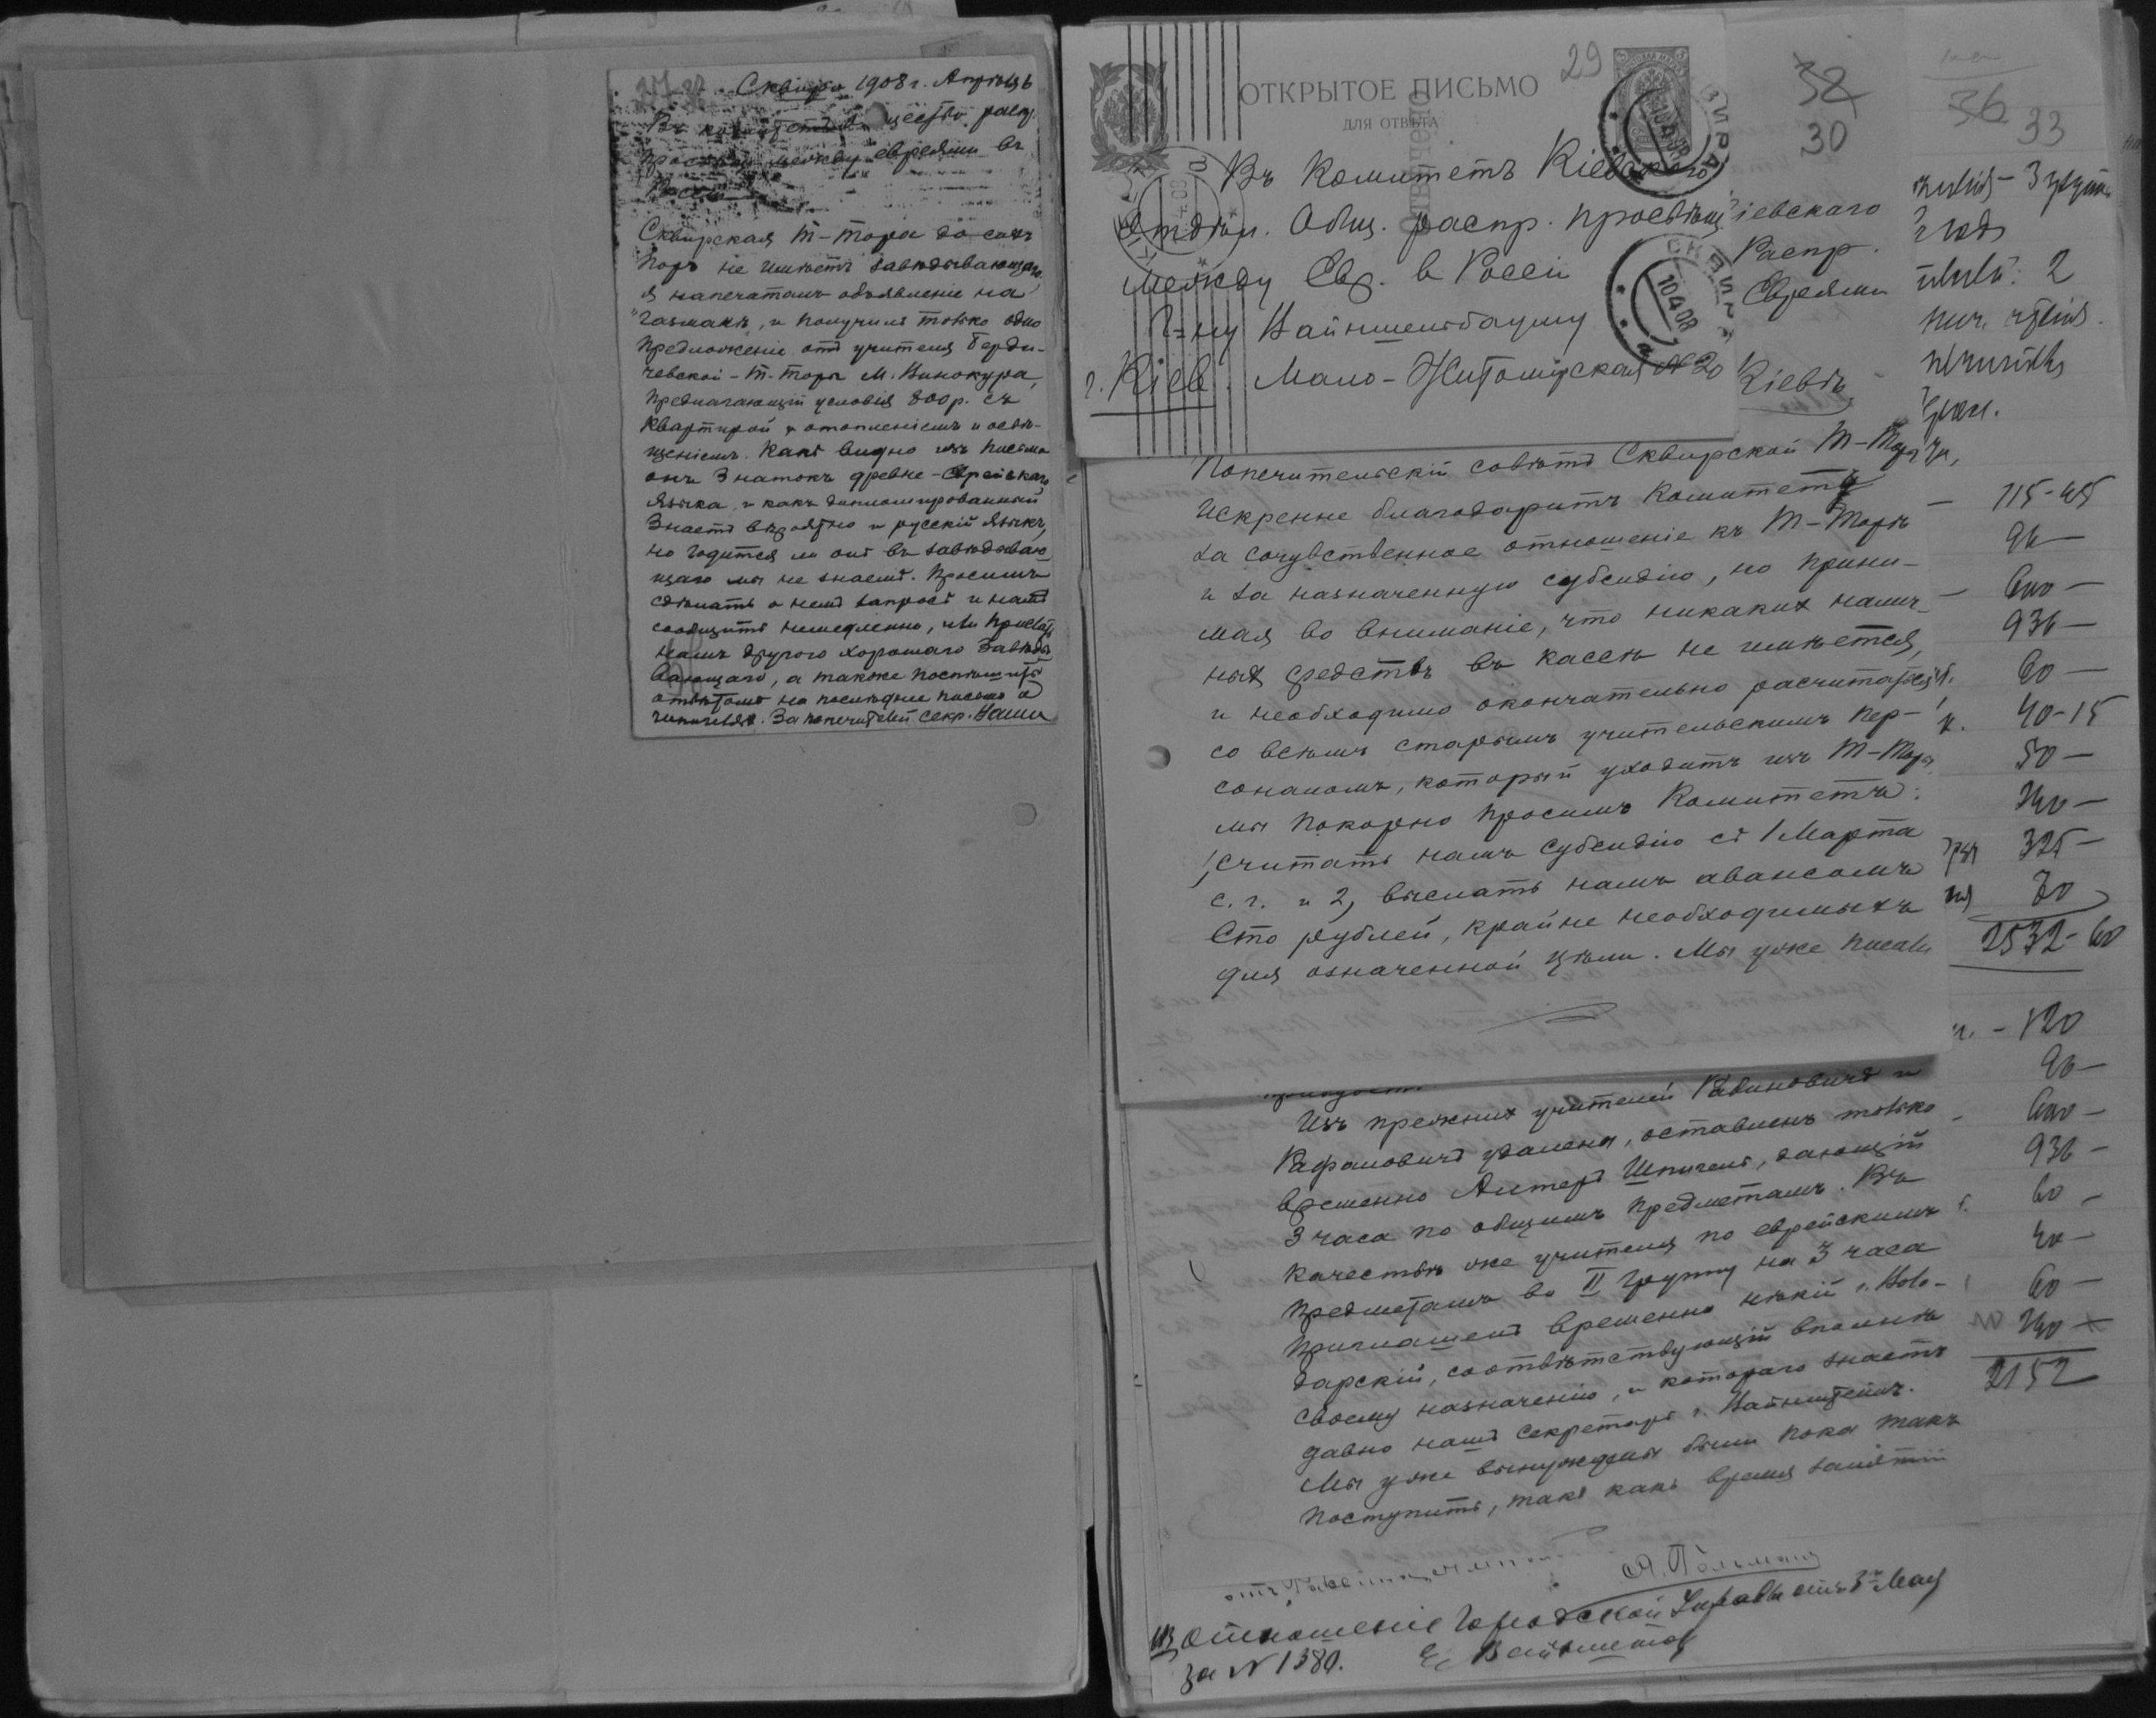 27
Сквира 1908 г. Апрѣль
Въ комитетъ общества расп.
просвѣщ. между евреями въ
Россіи
Сквирская Т-Тора до сихъ
поръ не имѣетъ завѣдывающаго,
я напечаталъ объявленіе на
"Газманъ", и получилъ только одно
предложеніе отъ учителя Берди-
чевской - Т. Торы М. Винокура,
предлагающій условія 800 р. съ
квартирой и отопленіемъ и освѣ-
щеніемъ. Какъ видно изъ письма
онъ знатокъ древне-еврейскаго
языка, и какъ дипломированный
знаетъ вѣроятно и русскій языкъ,
но годится ли онъ въ завѣдываю-
щаго мы не знаемъ. Просимъ
сдѣлать о немъ запросъ и намъ
сообщить немедленно, или прислать
намъ другого хорошаго завѣды-
вающаго, а также поспѣшить
отвѣтомъ на послѣднее письмо о
За попечителей секр. Вайнш
29
ОТКРЫТОЕ ПИСЬМО
ДЛЯ ОТВѢТА
ОТВѢЧЕНО
СКВИРА
10 4 08
Въ Комитетъ Кіевскаго
Отдѣл. Общ. распр. просвѣщ
между Евр. в Россіи
Г-ну Вайншельбауму
г. Кіев. Мало-Житомірская № 20
32
30
іевскаго
Распр.
Евреями
Кіевѣ
36
33
Попечительскій совѣтъ Сквирской Т-Торы
искренне благодаритъ Комитетъ
за сочувственное отношеніе къ Т-Торѣ
и за назначенную субсидію, но прини-
мая во вниманіе, что никакихъ налич-
ныхъ средствъ въ кассѣ не имѣется,
и необходимо окончательно расчитаться
со всѣмъ старымъ учительскимъ пер-
соналомъ, который уходитъ изъ Т-Торы
мы покорно просимъ Комитетъ:
1, считать намъ субсидію съ 1 Марта
с. г. и 2, выслать намъ авансомъ
Сто рублей, крайне необходимыхъ
для означенной цѣли. Мы уже писали
115-45
96 —
600 —
936 —
60 —
40-15
50 —
240 —
325 —
70
2532-60
Изъ прежнихъ учителей Рабиновичъ и
Рафаловичъ удалены, оставленъ только
временно Алтеръ Шпигель, дающій
3 часа по общимъ предметамъ. Въ
качествѣ же учителя по еврейскимъ
предметамъ во II группу на 3 часа
приглашенъ временно нѣкій г. Воло-
дарскій, соотвѣтствующій вполнѣ
своему назначенію, и котораго знаетъ
давно нашъ секретарь г. Вайнштейнъ.
Мы уже вынуждены были пока такъ
поступить, такъ какъ время занятій
- 120
96 —
600 —
936 —
60 —
40 —
60 —
240 —
2152
отношеніе Городской Управы отъ 3го Мая
за № 1380.